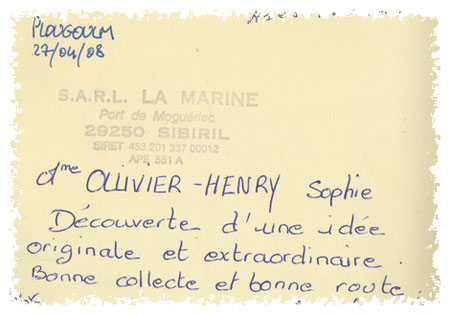 PLOUGOULM
27/04/08
S.A.R.L. LA MARINE
Port de Moguériec
29250 SIBIRIL
SIRET 453 201 337 00012
APE 551 A
Mme OLLIVIER-HENRY Sophie
Découverte d'une idée
originale et extraordinaire.
Bonne collecte et bonne route.